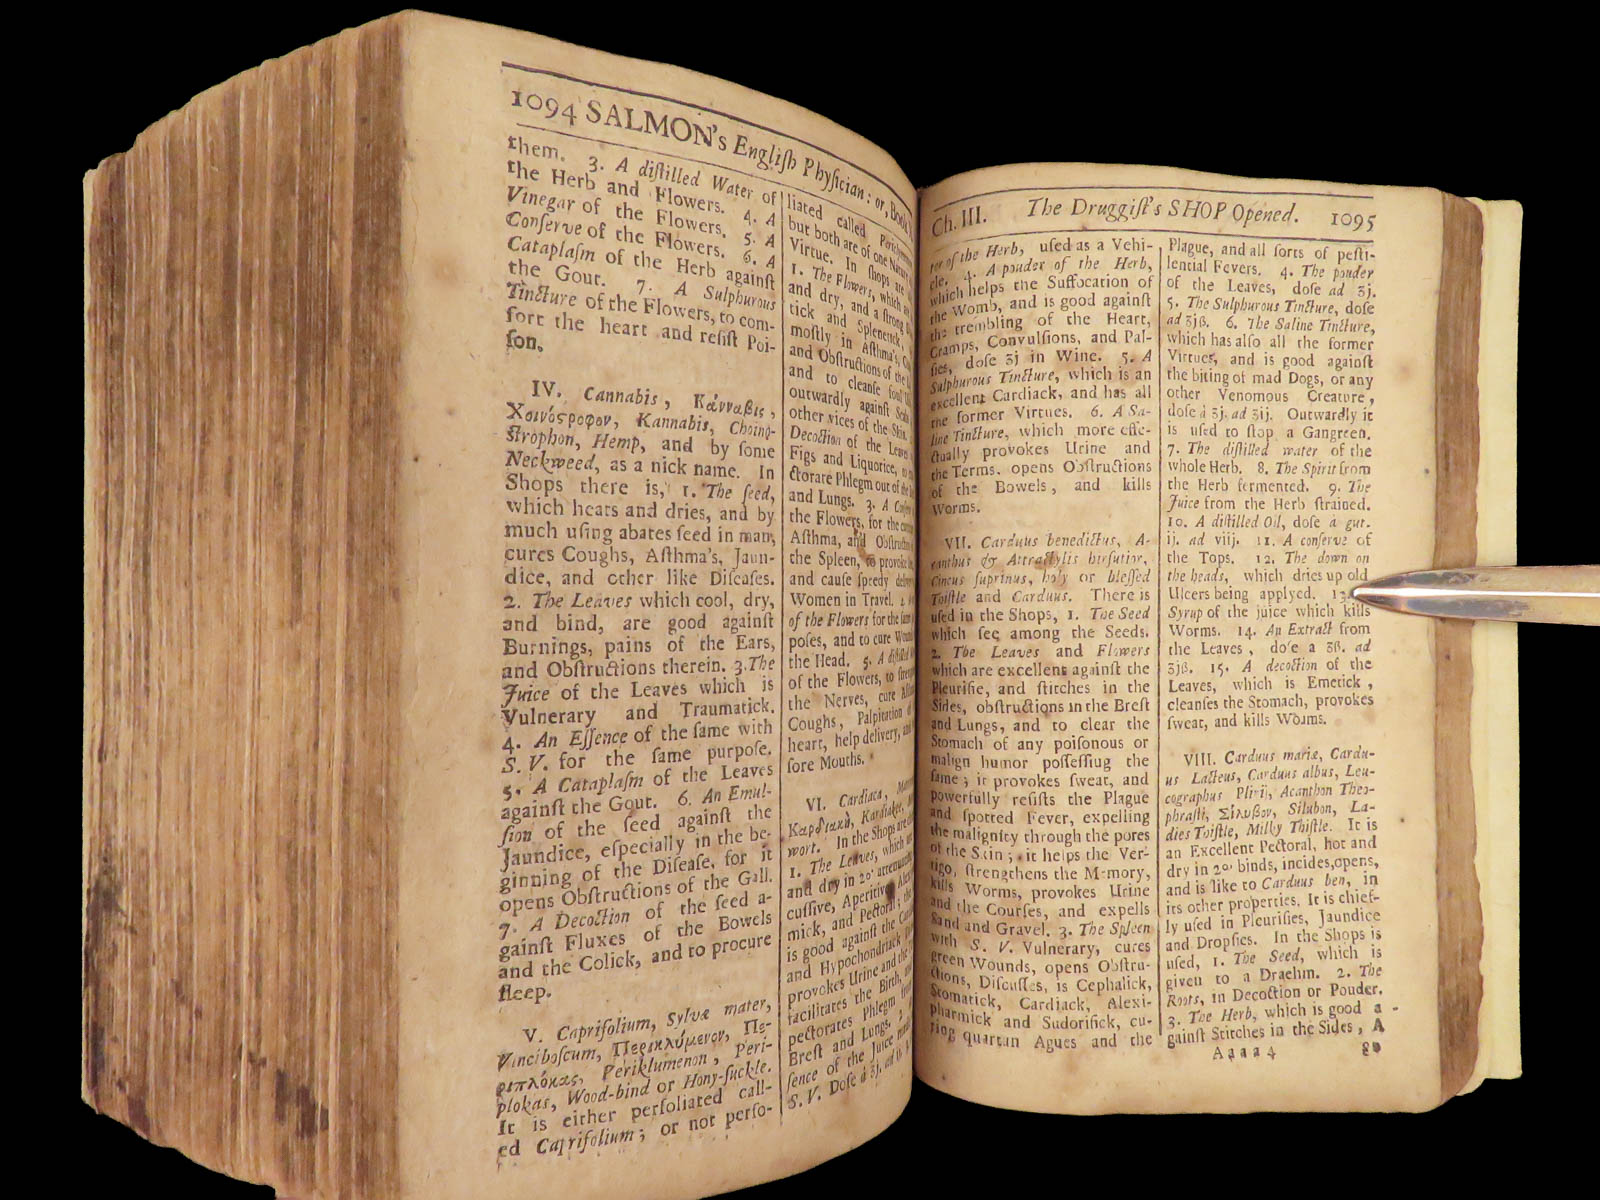 1094 SALMON's Engliſh Phyſician: or, Book
them. 3. A diſtilled Water of
the Herb and Flowers. 4. A
Vinegar of the Flowers. 5. A
Conſerve of the Flowers. 6. A
Cataplaſm of the Herb againſt
the Gout. 7. A Sulphurous
Tincture of the Flowers, to com-
fort the heart and reſiſt Poi-
ſon.
IV. Cannabis, Κάνναβις,
Χοινόςροφον, Kannabis, Choino-
ſtrophon, Hemp, and by ſome
Neckweed, as a nick name. In
Shops there is, 1. The ſeed,
which heats and dries, and by
much uſing abates ſeed in man,
cures Coughs, Aſthma's, Jaun-
dice, and other like Diſeaſes.
2. The Leaves which cool, dry,
and bind, are good againſt
Burnings, pains of the Ears,
and Obſtructions therein. 3. The
Juice of the Leaves which is
Vulnerary and Traumatick.
4. An Eſſence of the ſame with
S. V. for the ſame purpoſe.
5. A Cataplaſm of the Leaves
againſt the Gout. 6. An Emul-
ſion of the ſeed againſt the
Jaundice, eſpecially in the be-
ginning of the Diſeaſe, for it
opens Obſtructions of the Gall.
7. A Decoction of the ſeed a-
gainſt Fluxes of the Bowels
and the Colick, and to procure
ſleep.
V. Caprifolium, Sylvæ mater,
Vinciboſcum, Περικλύμενον, Πε-
ριπλόκας, Periklumenon, Peri-
plokas, Wood-bind or Hony-ſuckle.
It is either perfoliated call-
ed Caprifolium; or not perfo-
liated called
but both are of one
Virtue. In ſhops are
1. The Flowers, which
and dry, and a ſtrong
tick and Splenetick,
moſtly in Aſthma's,
and Obſtructions of the
and to cleanſe foul
outwardly againſt
other vices of the Skin.
Decoction of the Leaves
Figs and Liquorice, to
ctorate Phlegm out of the
and Lungs. 3. A
the Flowers, for the
Aſthma, and
the Spleen, to provoke
and cauſe ſpeedy
Women in Travel.
of the Flowers for the
poſes, and to cure
the Head. 5. A
of the Flowers, to
the Nerves, cure
Coughs, Palpitation
heart, help delivery, and
ſore Mouths.
VI. Cardiaca,
Καρδιακὴ, Kardiake,
wort. In the Shops are
1. The Leaves, which
and dry in 2°
cuſſive, Aperitive,
mick, and Pectoral; the
is good againſt the
and Hypochondriack
provokes Urine and the
facilitates the Birth,
pectorates Phlegm from
Breſt and Lungs. 2.
ſence of the Juice
S. V. Doſe à ʒj. ad
Ch. III. The Druggiſt's SHOP Opened. 1095
of the Herb, uſed as a Vehi-
cle. 4. A pouder of the Herb,
which helps the Suffocation of
the Womb, and is good againſt
the trembling of the Heart,
Cramps, Convulſions, and Pal-
ſies, doſe ʒj in Wine. 5. A
Sulphurous Tincture, which is an
excellent Cardiack, and has all
the former Virtues. 6. A Sa-
line Tincture, which more effe-
ctually provokes Urine and
the Terms, opens Obſtructions
of the Bowels, and kills
Worms.
VII. Carduus benedictus, A-
canthus & Attractylis hirſutior,
Cnicus ſuprinus, holy or bleſſed
Thiſtle and Carduus. There is
uſed in the Shops, 1. The Seed
which ſee among the Seeds.
2. The Leaves and Flowers
which are excellent againſt the
Pleuriſie, and ſtitches in the
Sides, obſtructions in the Breſt
and Lungs, and to clear the
Stomach of any poiſonous or
malign humor poſſeſſing the
ſame; it provokes ſweat, and
powerfully reſiſts the Plague
and ſpotted Fever, expelling
the malignity through the pores
of the Skin; it helps the Ver-
tigo, ſtrengthens the Memory,
kills Worms, provokes Urine
and the Courſes, and expells
Sand and Gravel. 3. The Spleen
with S. V. Vulnerary, cures
green Wounds, opens Obſtru-
ctions, Diſcuſſes, is Cephalick,
Stomatick, Cardiack, Alexi-
pharmick and Sudorifick, cu-
ring quartan Agues and the
Plague, and all ſorts of peſti-
lential Fevers. 4. The pouder
of the Leaves, doſe ad ʒj.
5. The Sulphurous Tincture, doſe
ad ʒjß. 6. The Saline Tincture,
which has alſo all the former
Virtues, and is good againſt
the biting of mad Dogs, or any
other Venomous Creature,
doſe à ʒj. ad ʒij. Outwardly it
is uſed to ſtop a Gangreen.
7. The diſtilled water of the
whole Herb. 8. The Spirit from
the Herb fermented. 9. The
Juice from the Herb ſtrained.
10. A diſtilled Oil, doſe a gut.
ij. ad viij. 11. A conſerve of
the Tops. 12. The down on
the heads, which dries up old
Ulcers being applyed. 13.
Syrup of the juice which kills
Worms. 14. An Extract from
the Leaves, doſe a ʒß. ad
ʒjß. 15. A decoction of the
Leaves, which is Emetick,
cleanſes the Stomach, provokes
ſweat, and kills Worms.
VIII. Carduus mariæ, Cardu-
us Lacteus, Carduus albus, Leu-
cographus Plinij, Acanthon Theo-
phraſti, Σίλυβον, Silubon, La-
dies Thiſtle, Milky Thiſtle. It is
an Excellent Pectoral, hot and
dry in 2° binds, incides, opens,
and is like to Carduus ben, in
its other properties. It is chief-
ly uſed in Pleuriſies, Jaundice
and Dropſies. In the Shops is
uſed, 1. The Seed, which is
given to a Drachm. 2. The
Roots, in Decoction or Pouder.
3. The Herb, which is good a-
gainſt Stitches in the Sides, A
Aaaa 4